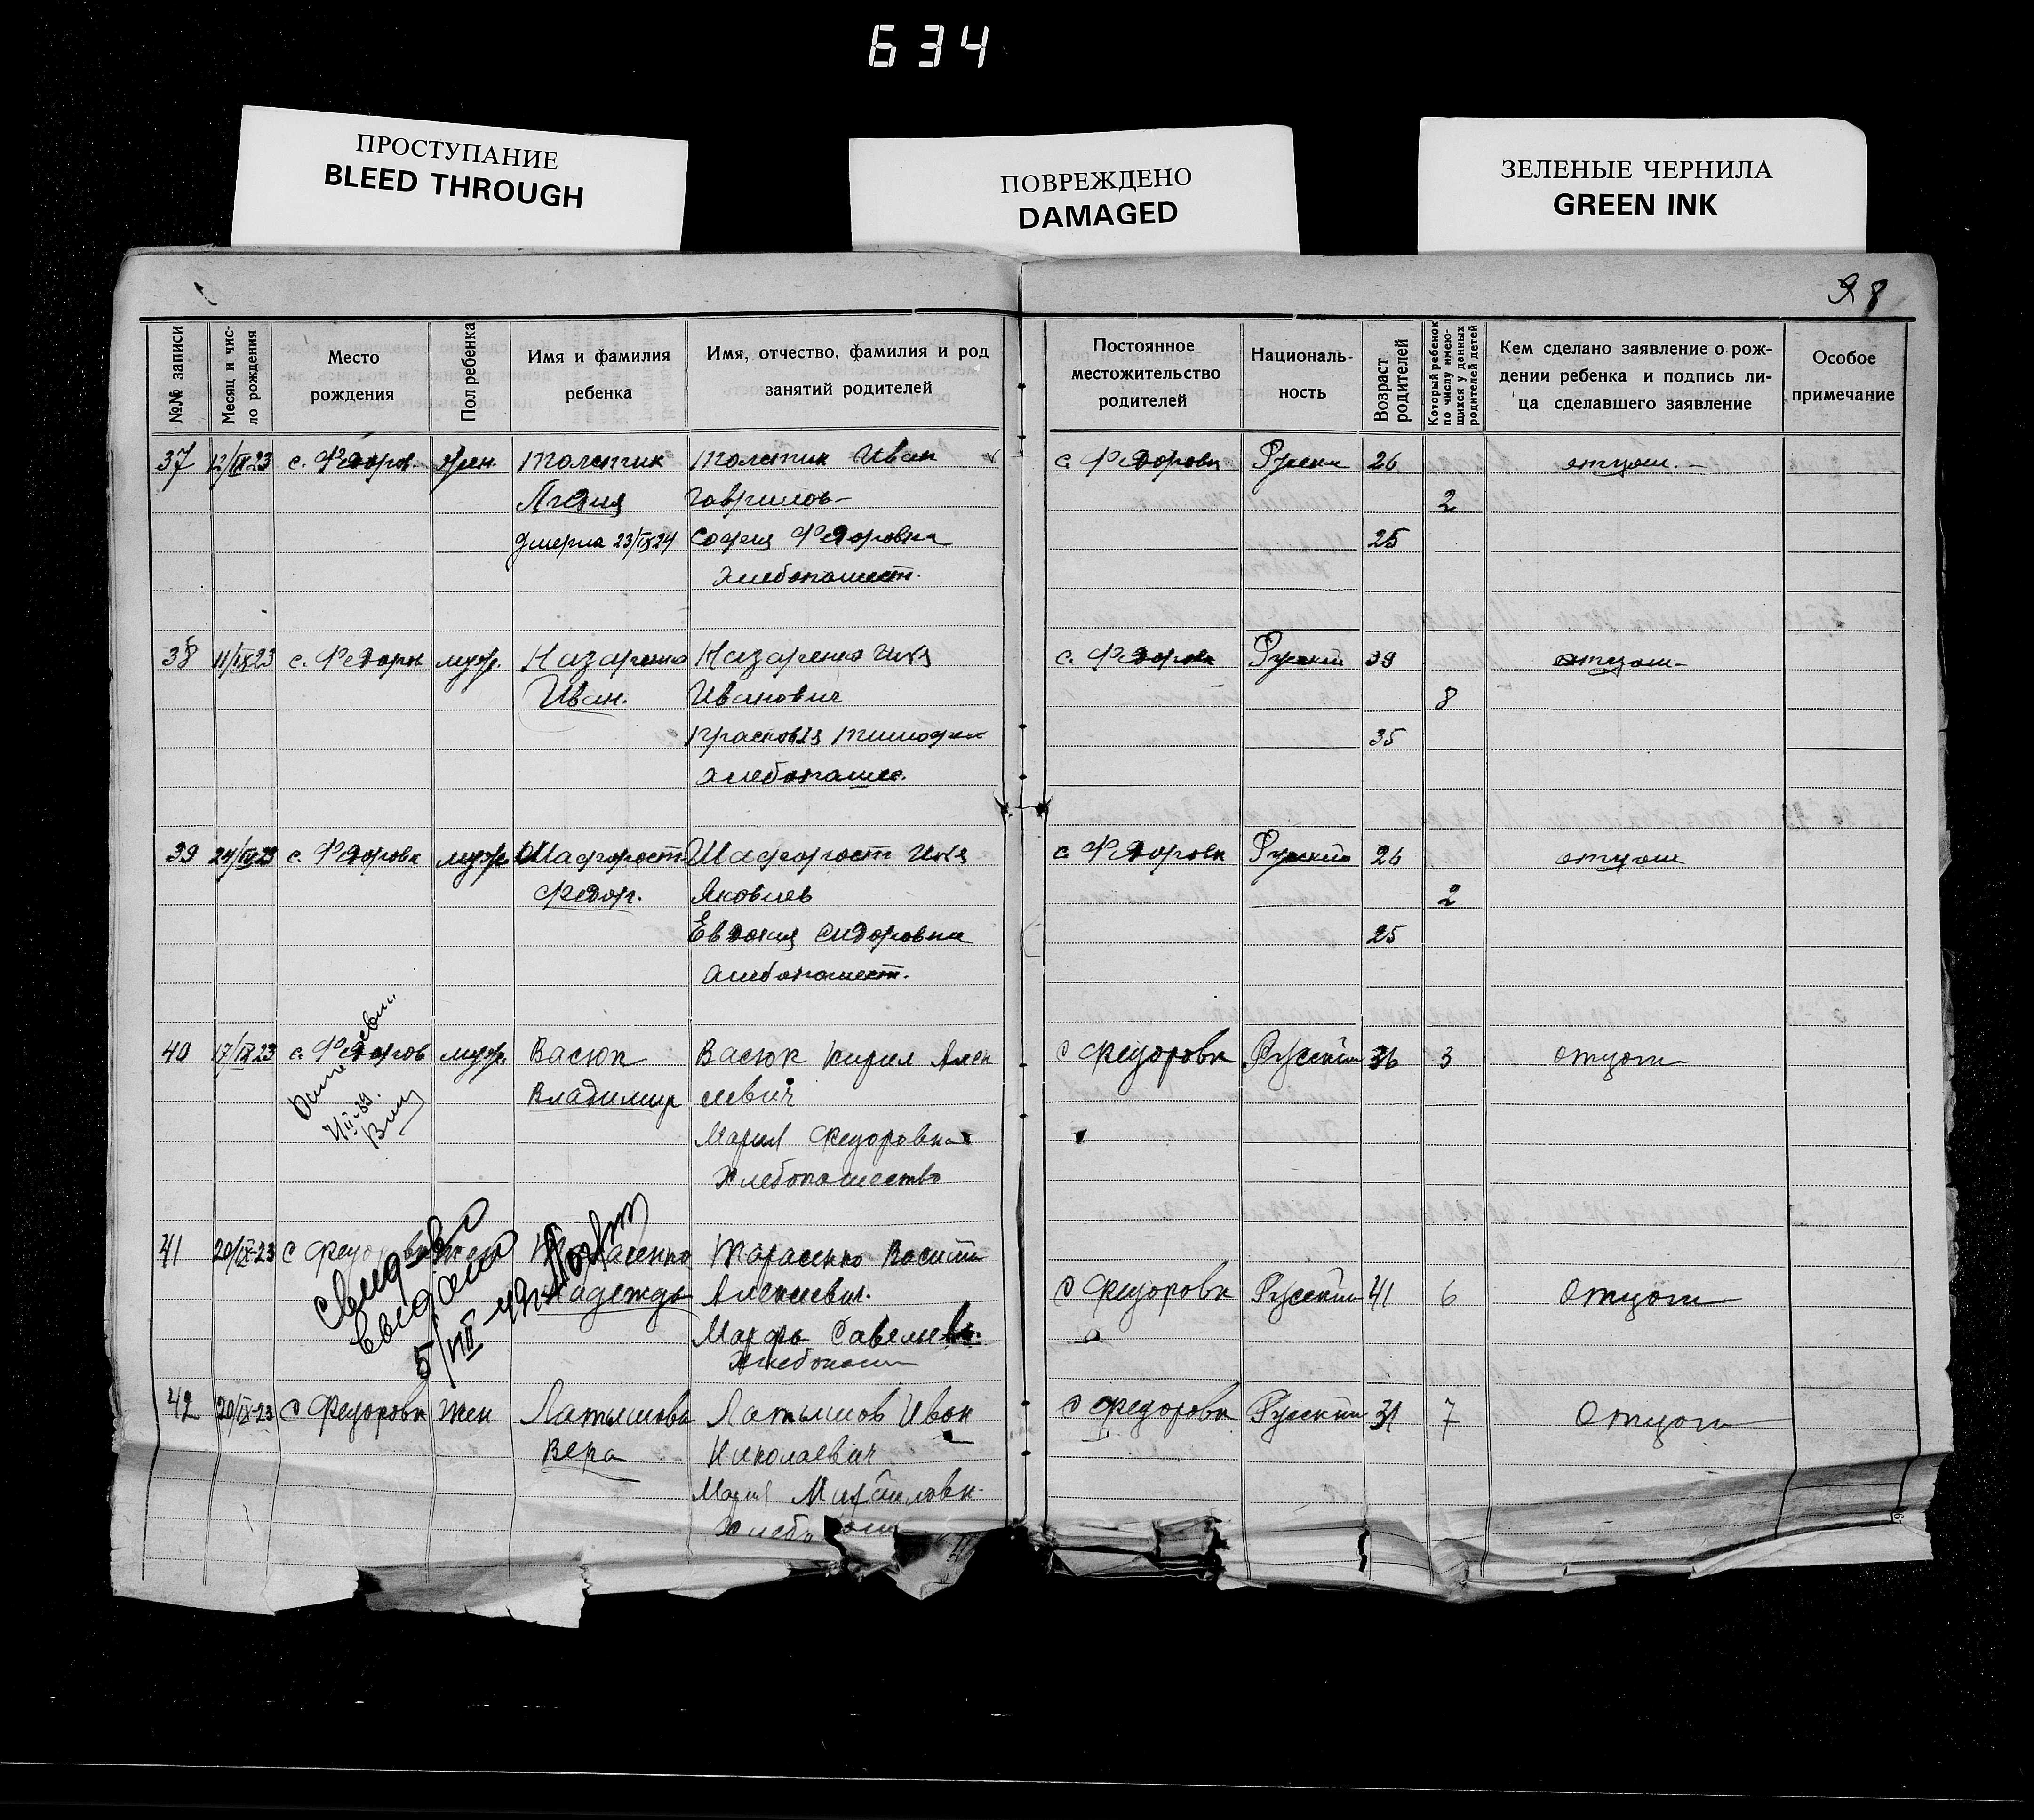 634
ПРОСТУПАНИЕ
BLEED THROUGH
ПОВРЕЖДЕНО
DAMAGED
ЗЕЛЕНЫЕ ЧЕРНИЛА
GREEN INK
98
№№ записи
Месяц и чис-
ло рождения
Место
рождения
Пол ребенка
Имя и фамилия
ребенка
Имя, отчество, фамилия и род
занятий родителей
Постоянное
местожительство
родителей
Националь-
ность
Возраст
родителей
Который ребенок
по числу имею-
щихся у данных
родителей детей
Кем сделано заявление о рож-
дении ребенка и подпись ли-
ца сделавшего заявление
Особое
примечание
37 12/IX 23 с. Федоров. жен. Толстик Толстик Иван с. Федоровка Русски 26 отцом.
Гаврилов 2
умерла 23/IX 24 София Федоровна 25
хлебопашест.
38 11/IX 23 с. Федоров муж. Назаренко Назаренко Илья с. Федоровк Русский 39 отцом
Иван. Иванович 8
Прасковья Тимофеев 35
хлебопашес.
39 24/IX 23 с. Федоровк муж. Шафорост Шафорост Илья с. Федоровк Русский 26 отцом
Федор. Яковлев 2
Евдокия Сидоровна 25
хлебопашест.
40 17/IX 23 с. Федоров муж. Васюк Васюк Кирил Алек с Федоровк Русский 36 3 отцом
Владимир сеевич
Мария Федоровна
Хлебопашество
41 20/IX-23 с Федоровк жен Тарасенко Тарасенко Василий
Надежда Алексеевич. с Федоровк Русский 41 6 Отцом
Марфа Савелиев.
Хлебопаш
свид-во
выдано
5/VIII-49г
42 20/IX-23 с Федоровк жен Латышова Латышов Иван с Федоровк Русский 31 7 Отцом
Вера Николаевич
Мария Михайловн.